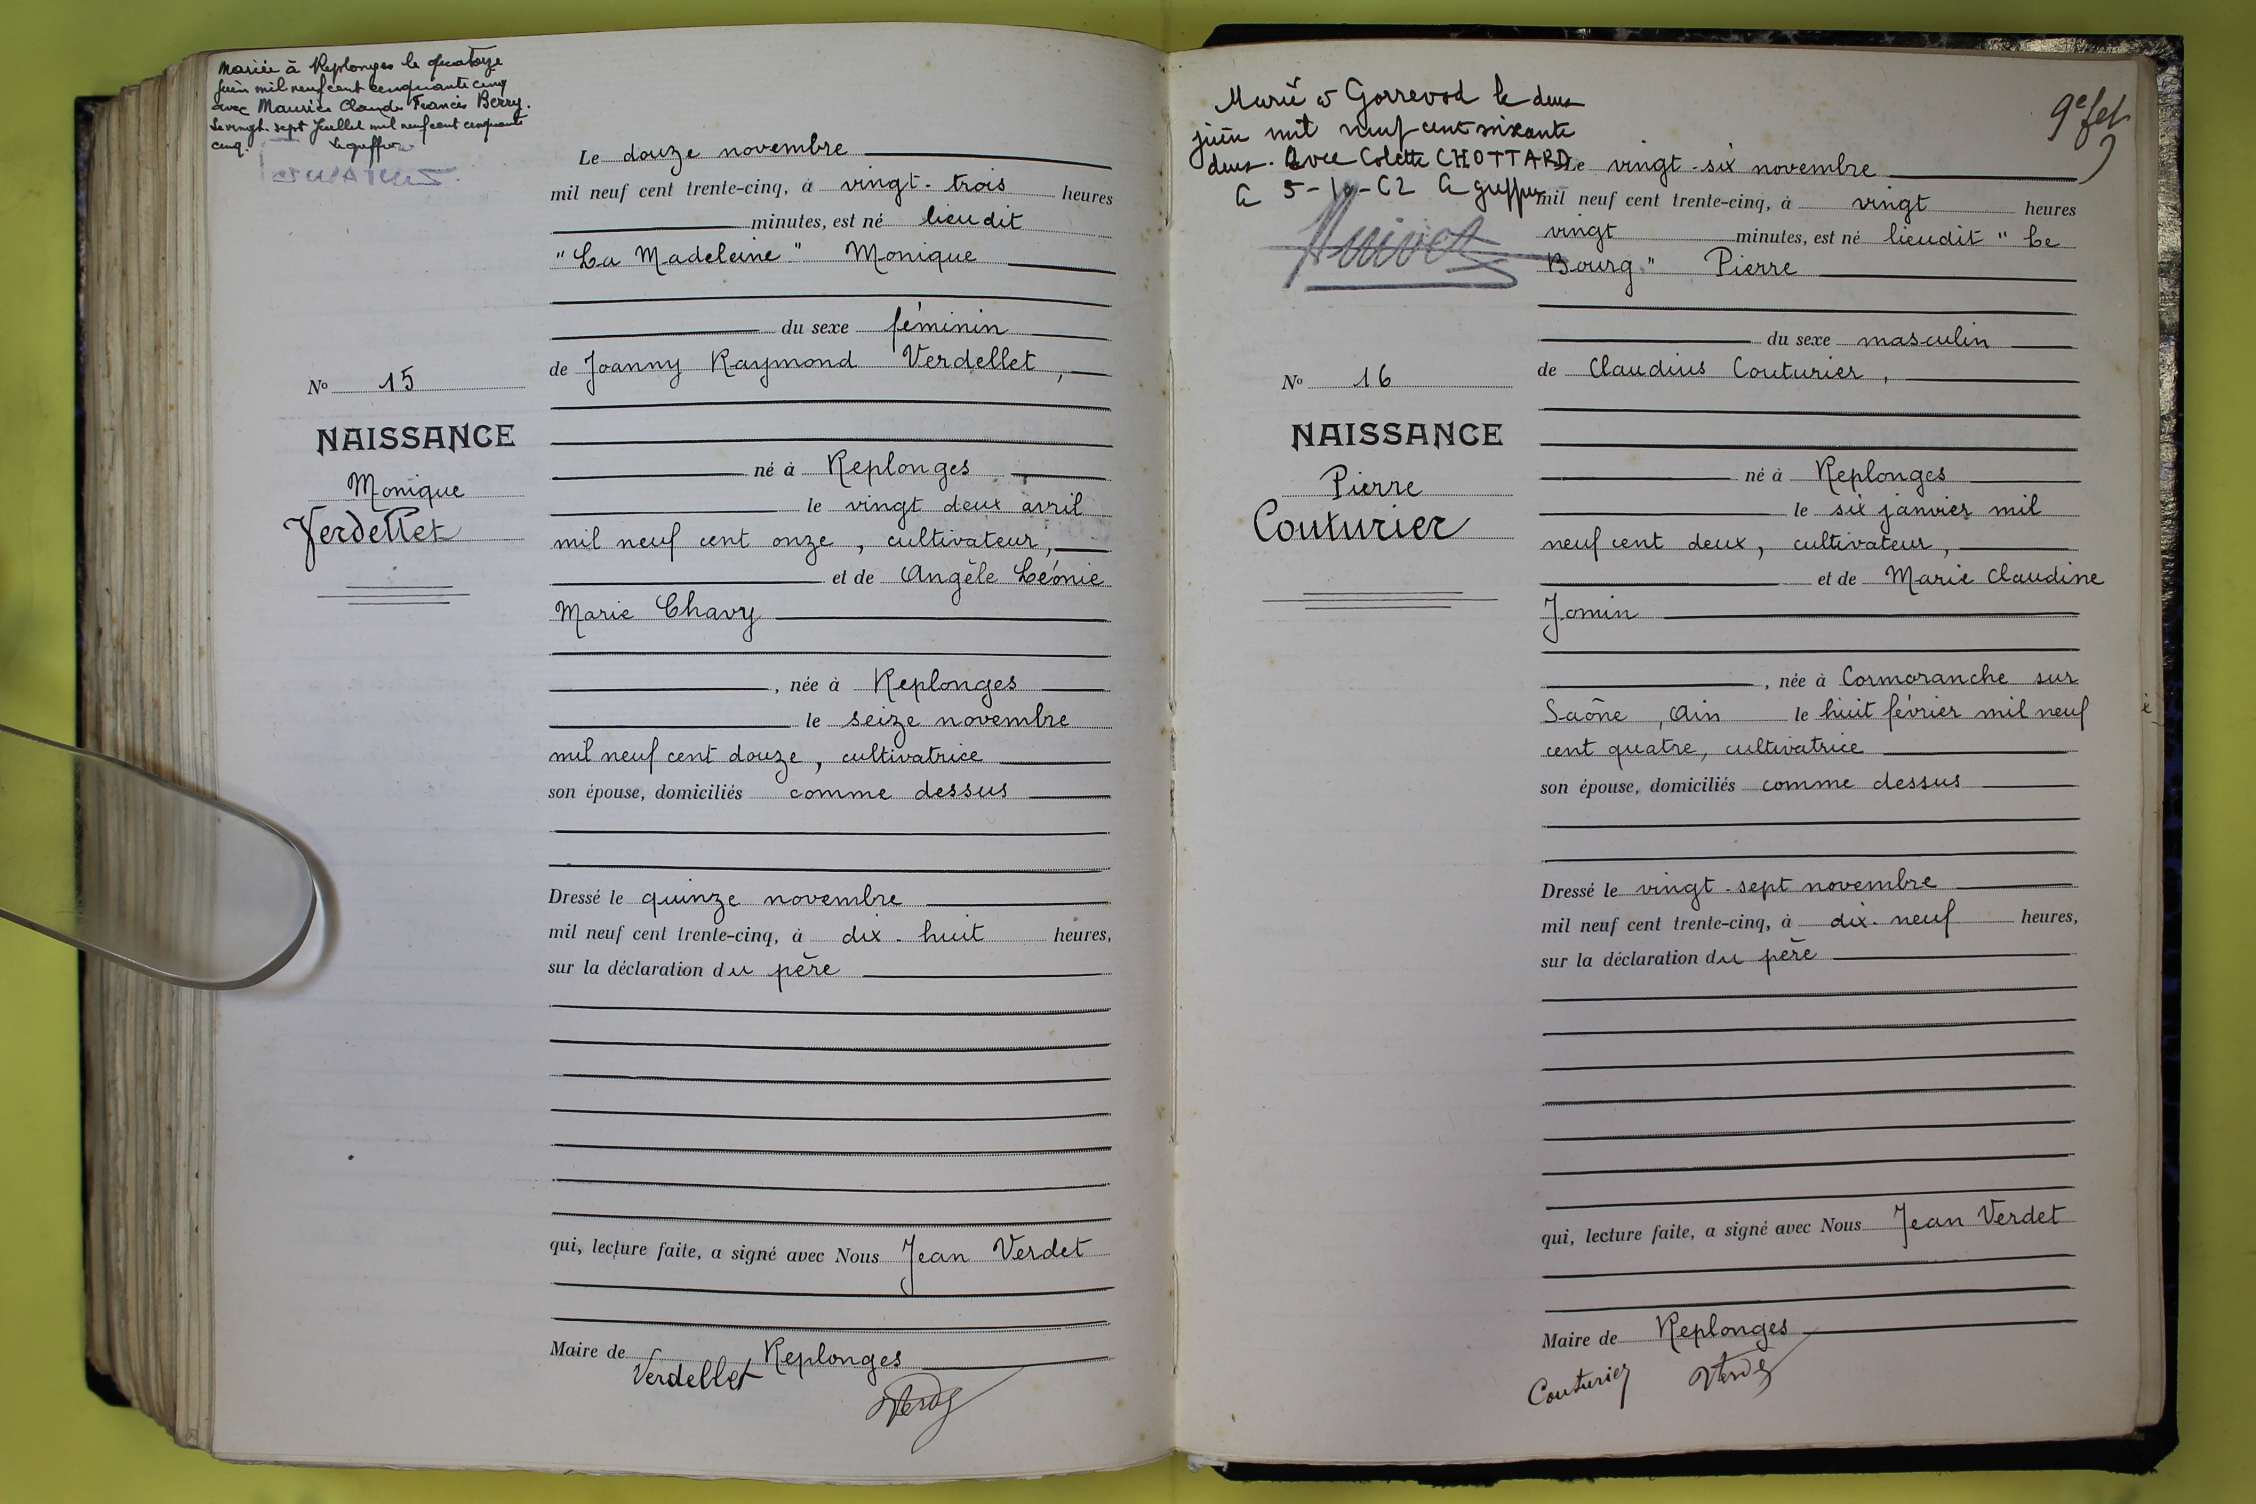 Mariée à Replonges le quatorze
juin mil neuf cent cinquante cinq
avec Maurice Claude Francis Berry.
Le vingt-sept Juillet mil neuf cent cinquante
cinq. Le greffier
Le douze novembre
mil neuf cent trente-cinq, à vingt-trois heures
minutes, est né lieudit
"La Madeleine" Monique
du sexe féminin
de Joanny Raymond Verdellet,
né à Replonges
le vingt deux avril
mil neuf cent onze, cultivateur,
et de Angèle Léonie
Marie Chavy
, née à Replonges
le seize novembre
mil neuf cent douze, cultivatrice
son épouse, domiciliés comme dessus
Dressé le quinze novembre
mil neuf cent trente-cinq, à dix-huit heures,
sur la déclaration du père
qui, lecture faite, a signé avec Nous Jean Verdet
Maire de Replonges
Verdellet
No 15
NAISSANCE
Monique
Verdellet
9e fet
Marié à Gorrevod le deux
juin mil neuf cent soixante
deux. avec Colette CHOTTARD
Le vingt-six novembre
mil neuf cent trente-cinq, à vingt heures
vingt minutes, est né lieudit "Le
Bourg" Pierre
du sexe masculin
de Claudius Couturier,
né à Replonges
le six janvier mil
neuf cent deux, cultivateur,
et de Marie Claudine
Jomin
, née à Cormoranche sur
Saône, Ain le huit février mil neuf
cent quatre, cultivatrice
son épouse, domiciliés comme dessus
Dressé le vingt-sept novembre
mil neuf cent trente-cinq, à dix-neuf heures,
sur la déclaration du père
qui, lecture faite, a signé avec Nous Jean Verdet
Maire de Replonges
Couturier
No 16
NAISSANCE
Pierre
Couturier